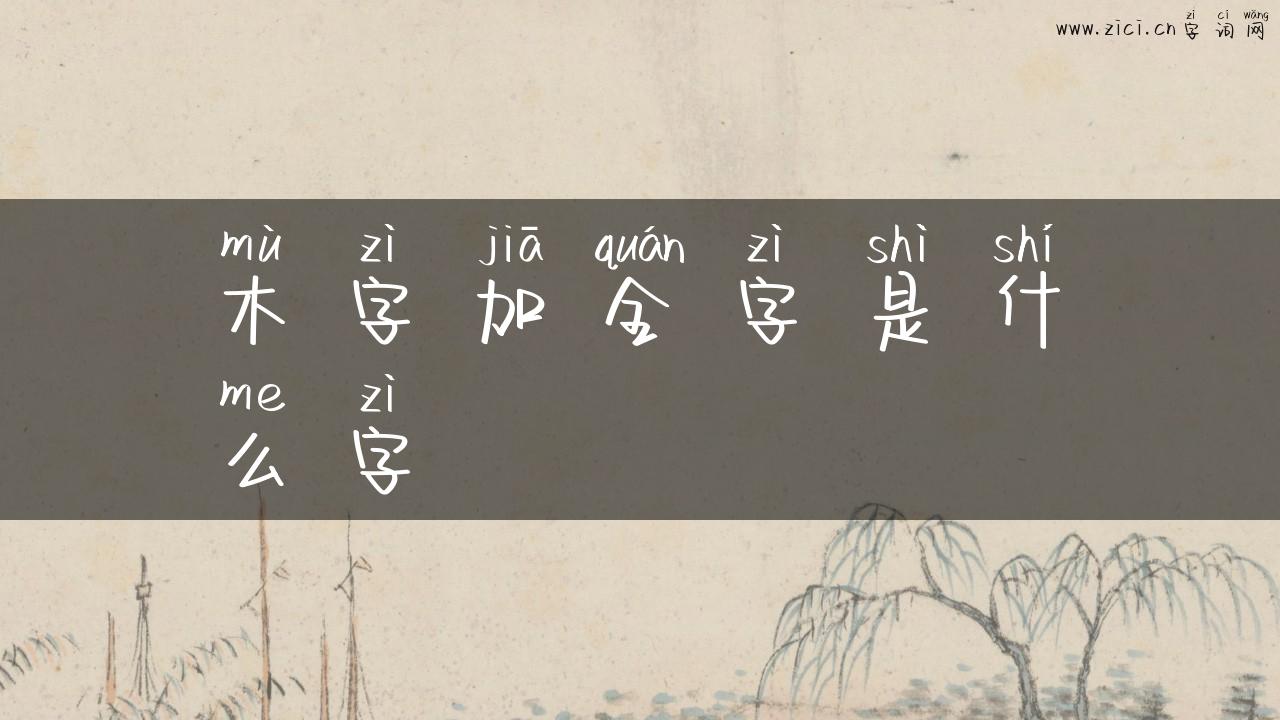 zì cí wǎng
www.zici.cn 字 词 网
mù zì jiā quán zì shì shí
木 字 加 全 字 是 什
me zì
么 字